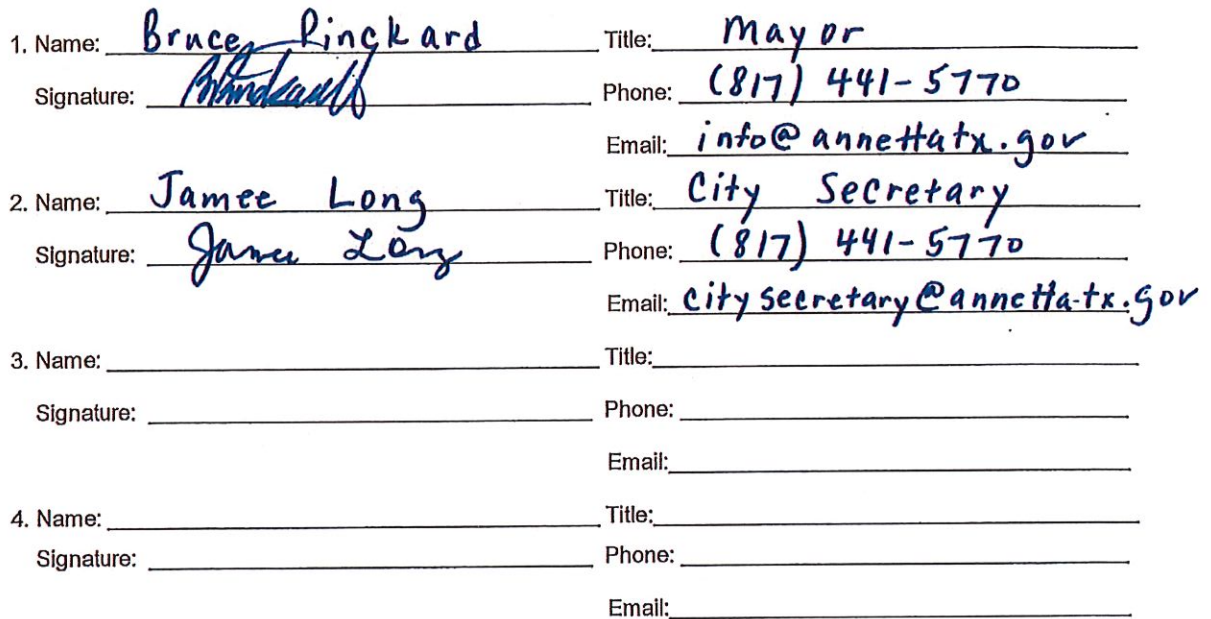 1. Name: Bruce Pinckard Title: Mayor
Signature: Phone: (817) 441-5770
Email: info@annettatx.gov
2. Name: Jamee Long Title: City Secretary
Signature: Jamee Long Phone: (817) 441-5770
Email: citysecretary@annetta-tx.gov
3. Name: Title:
Signature: Phone:
Email:
4. Name: Title:
Signature: Phone:
Email: